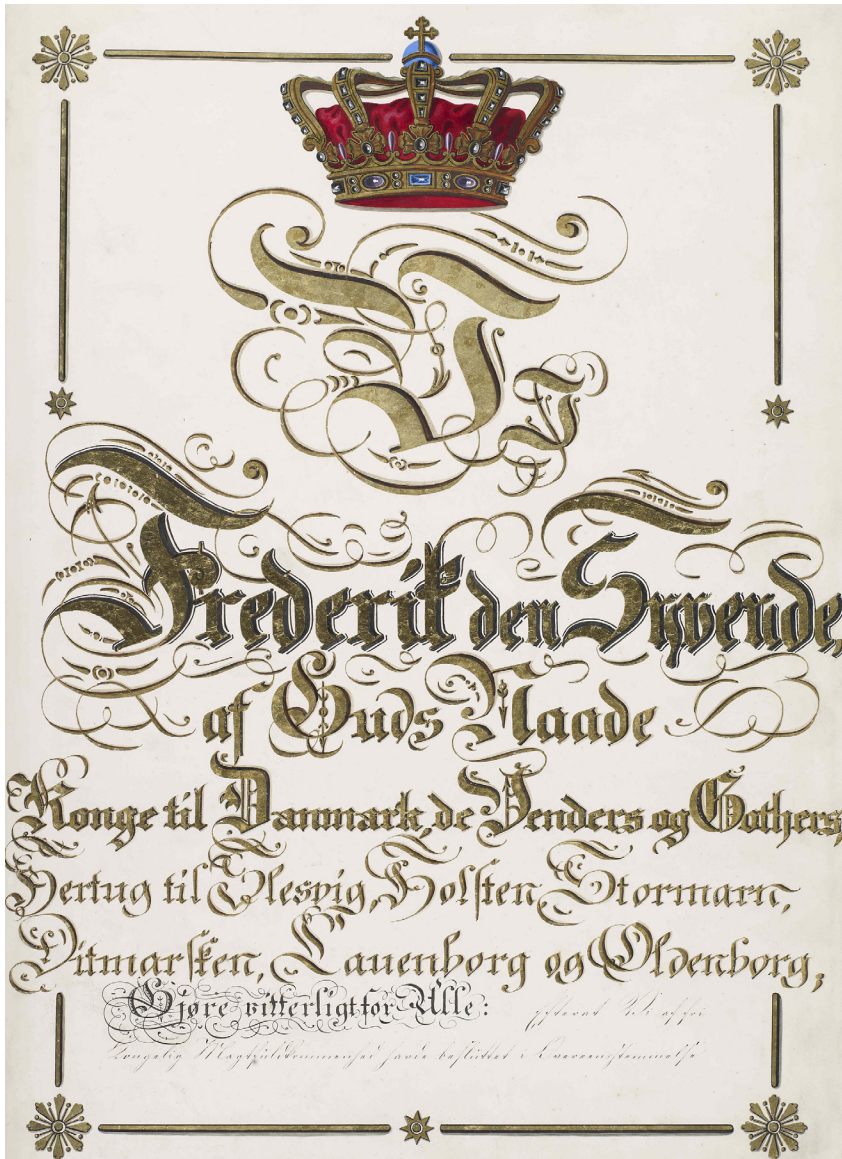 Frederik den Syvende,
af Guds Naade
Konge til Danmark, de Venders og Gothers,
Hertug til Slesvig, Holsten, Stormarn,
Ditmarsken, Lauenborg og Oldenborg,
Gjøre vitterligt for Alle: Efterat Vi af fri
kongelig Magtfuldkommenhed havde besluttet i Overeensstemmelse